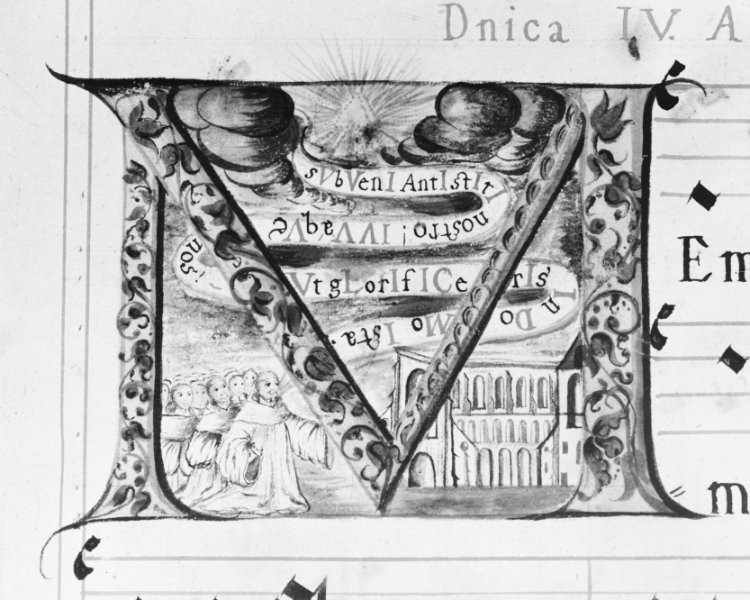 Dnica IV. A
M
sVbVenI AntIstItI
nostro; IVVAqVe
nos;
Vt gLorIfICerIs
In DoMo Ista
Em
m